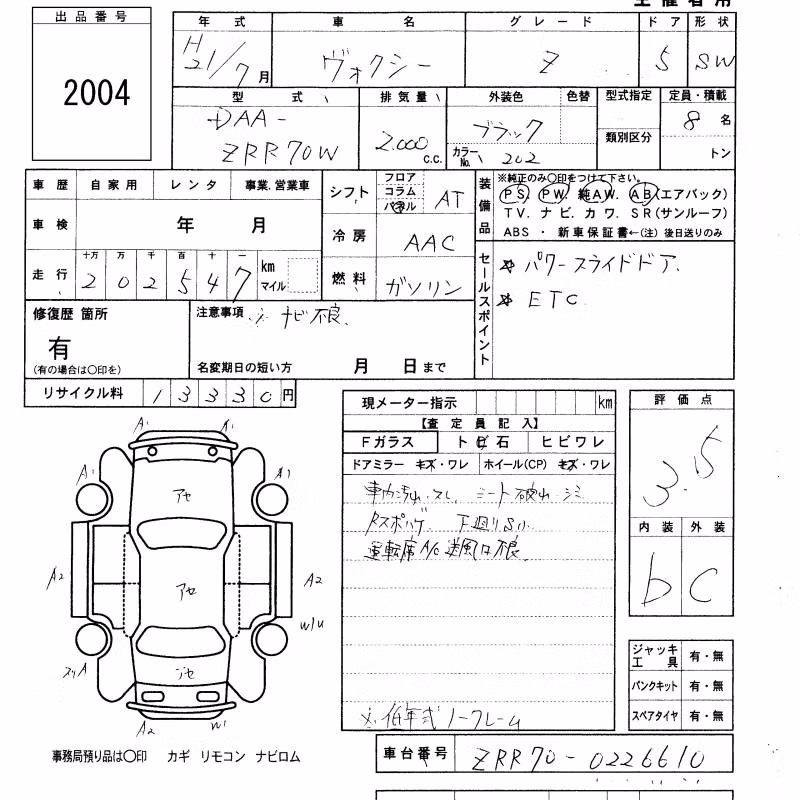 出品番号
2004
年式 車名 グレード ドア 形状
H21/7月 ヴォクシー Z 5 SW
型式 排気量 外装色 色替 型式指定 定員・積載
DAA-ZRR70W 2.000 c.c. ブラック カラーNo. 202 類別区分 8名 トン
車歴 自家用 レンタ 事業.営業車
車検 年 月
走行 十万 万 千 百 十 一
202547 km マイル
シフト フロア コラム パネル AT
冷房 AAC
燃料 ガソリン
装備品
※純正のみ〇印をつけて下さい。
PS. PW. 純AW. AB(エアバック)
TV. ナビ. カワ. SR(サンルーフ)
ABS ・ 新車保証書←(注) 後日送りのみ
セールスポイント
☆ パワースライドドア.
☆ ETC
修復歴 箇所
有
(有の場合は〇印を)
注意事項 ※ ナビ不良.
名変期日の短い方 月 日まで
リサイクル料 13330円
現メーター指示 km
【査定員記入】
Fガラス トビ石 ヒビワレ
ドアミラー キズ・ワレ ホイール(CP) キズ・ワレ
車内汚れ・スレ シート破れ シミ
下廻りサビ
運転席A/C送風口不良
※低年式ノークレーム
評価点
3.5
内装 外装
b C
ジャッキ工具 有・無
パンクキット 有・無
スペアタイヤ 有・無
A1 A1
A1 A1
アセ
A2 アセ A2
W/U
スリA ジセ
A2 W1
事務局預り品は〇印 カギ リモコン ナビロム
車台番号 ZRR70-0226610